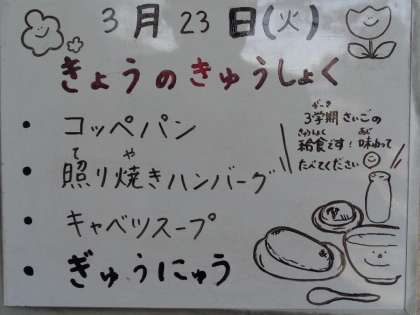 3月23日(火)
きょうのきゅうしょく
・コッペパン
・照り焼きハンバーグ
て や
・キャベツスープ
・ぎゅうにゅう
がっき
3学期さいごの
きゅうしょく あじ
給食です!味わって
たべてください